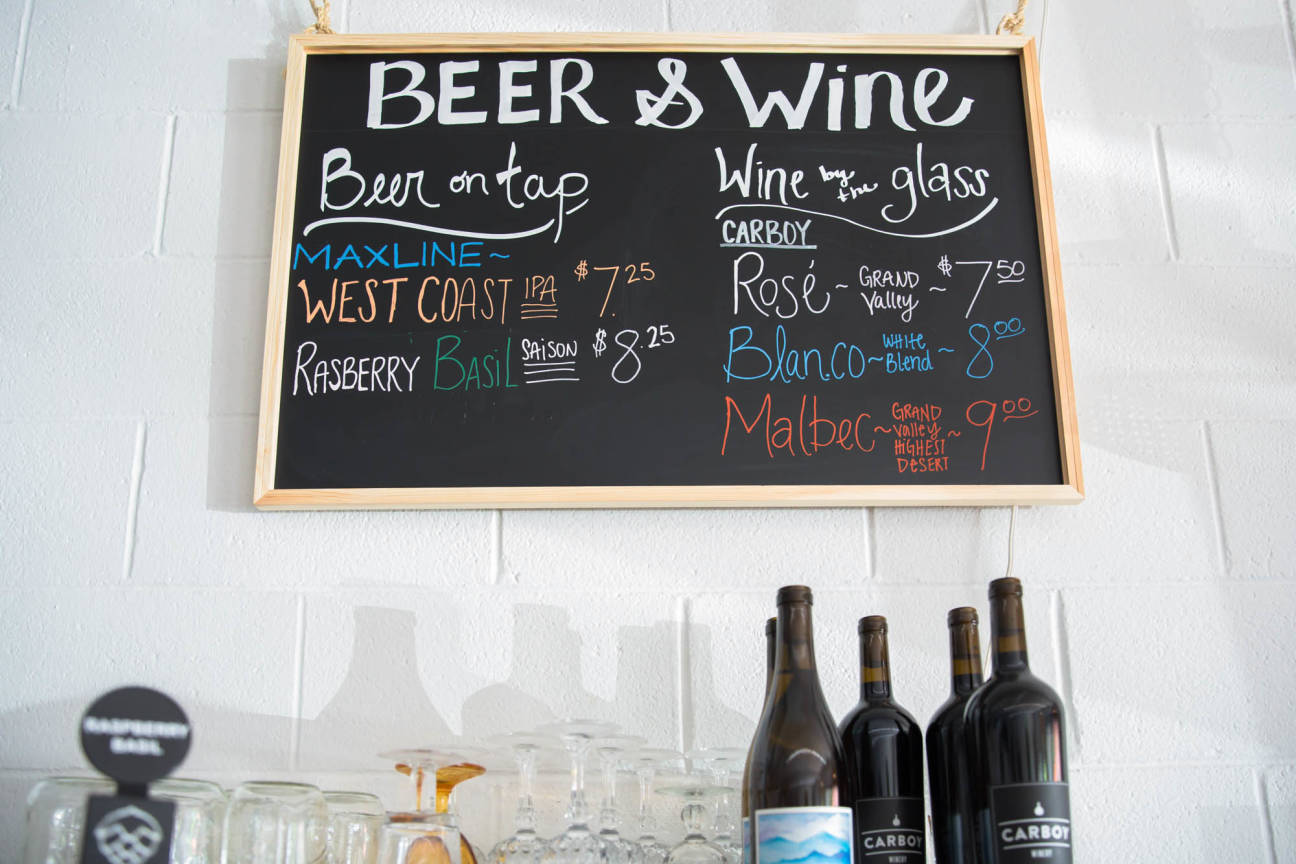 BEER & Wine
Beer on tap
MAXLINE ~
WEST COAST IPA $7.25
RASBERRY BASIL SAISON $8.25
Wine by the glass
CARBOY
Rosé ~ GRAND Valley ~ $7.50
Blanco ~ WHITE Blend ~ 8.00
Malbec ~ GRAND Valley HIGHEST DESERT ~ 9.00
RASPBERRY
BASIL
CARBOY
WINERY
CARBOY
WINERY